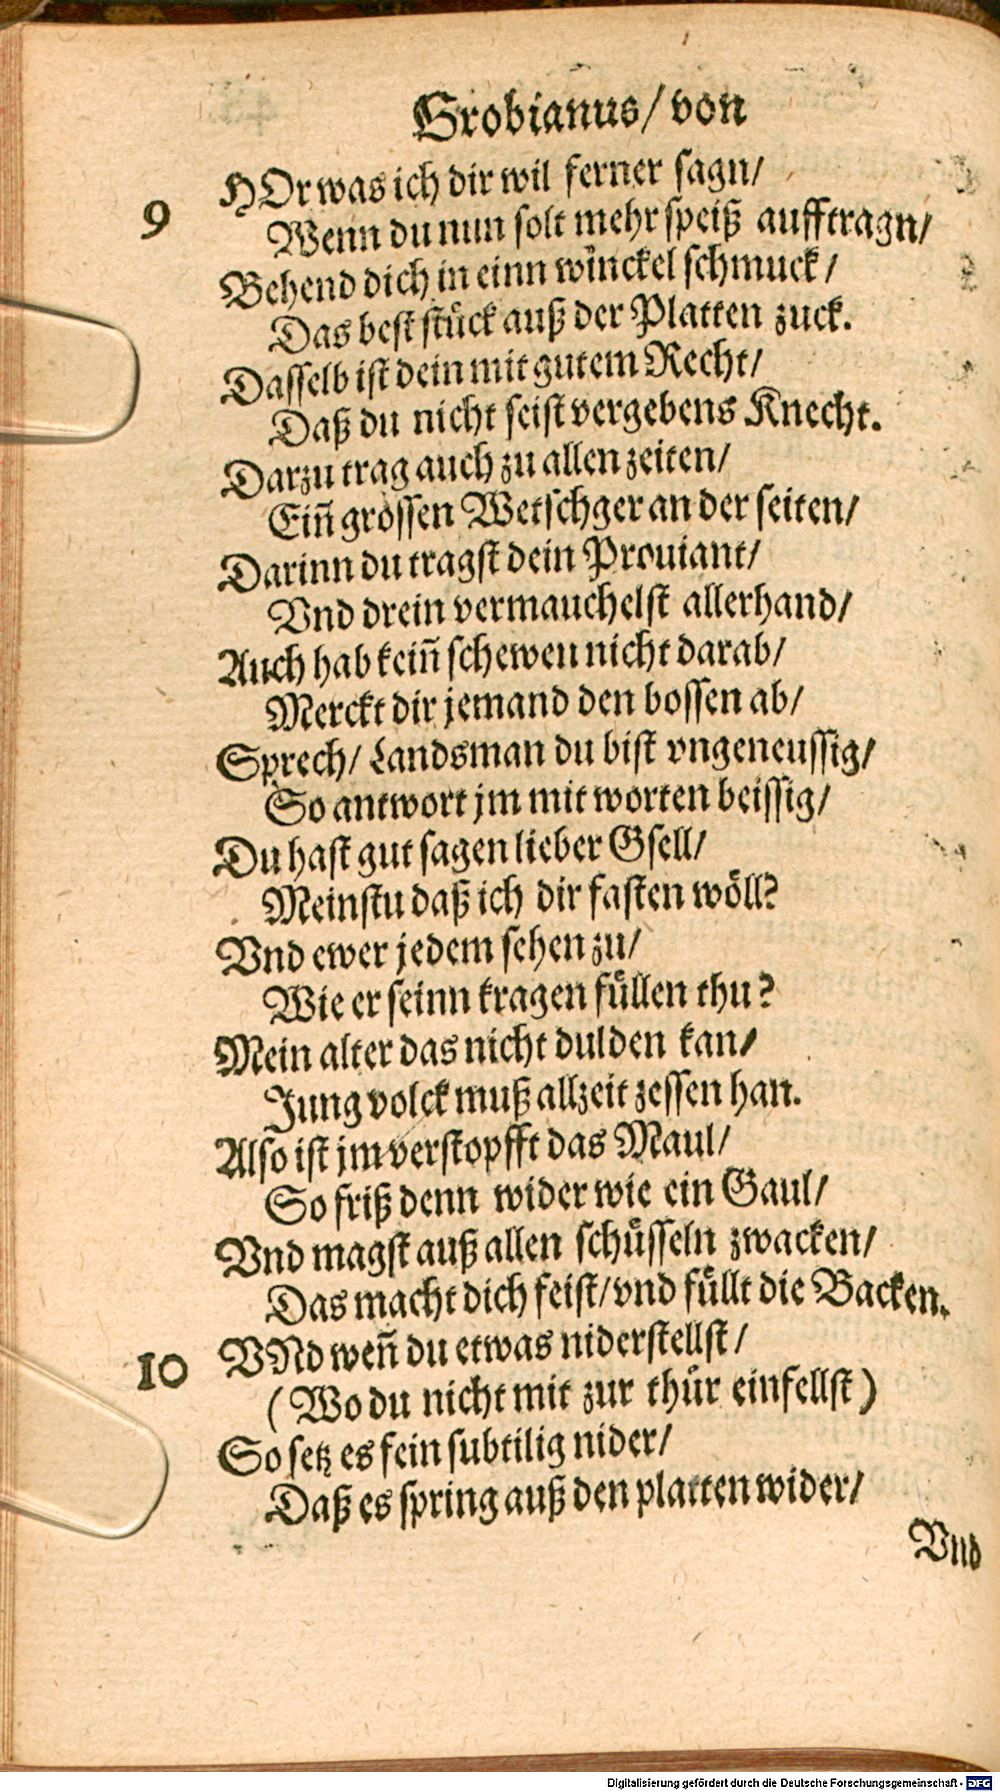 Grobianus/ von
9 HOr was ich dir wil ferner sagn/
Wenn du nun solt mehr speiß aufftragn/
Behend dich in einn winckel schmuck/
Das best stück auß der Platten zuck.
Dasselb ist dein mit gutem Recht/
Daß du nicht seist vergebens Knecht.
Darzu trag auch zu allen zeiten/
Ein̄ grossen Wetschger an der seiten/
Darinn du tragst dein Prouiant/
Vnd drein vermauchelst allerhand/
Auch hab kein̄ schewen nicht darab/
Merckt dir jemand den bossen ab/
Sprech/ Landsman du bist vngeneussig/
So antwort jm mit worten beissig/
Du hast gut sagen lieber Gsell/
Meinstu daß ich dir fasten wöll?
Vnd ewer jedem sehen zu/
Wie er seinn kragen füllen thu?
Mein alter das nicht dulden kan/
Jung volck muß allzeit zessen han.
Also ist jm verstopfft das Maul/
So friß denn wider wie ein Gaul/
Vnd magst auß allen schüsseln zwacken/
Das macht dich feist/ vnd füllt die Backen.
10 VNd wen̄ du etwas niderstellst/
(Wo du nicht mit zur thür einfellst)
So setz es fein subtilig nider/
Daß es spring auß den platten wider/
Vnd
Digitalisierung gefördert durch die Deutsche Forschungsgemeinschaft - DFG